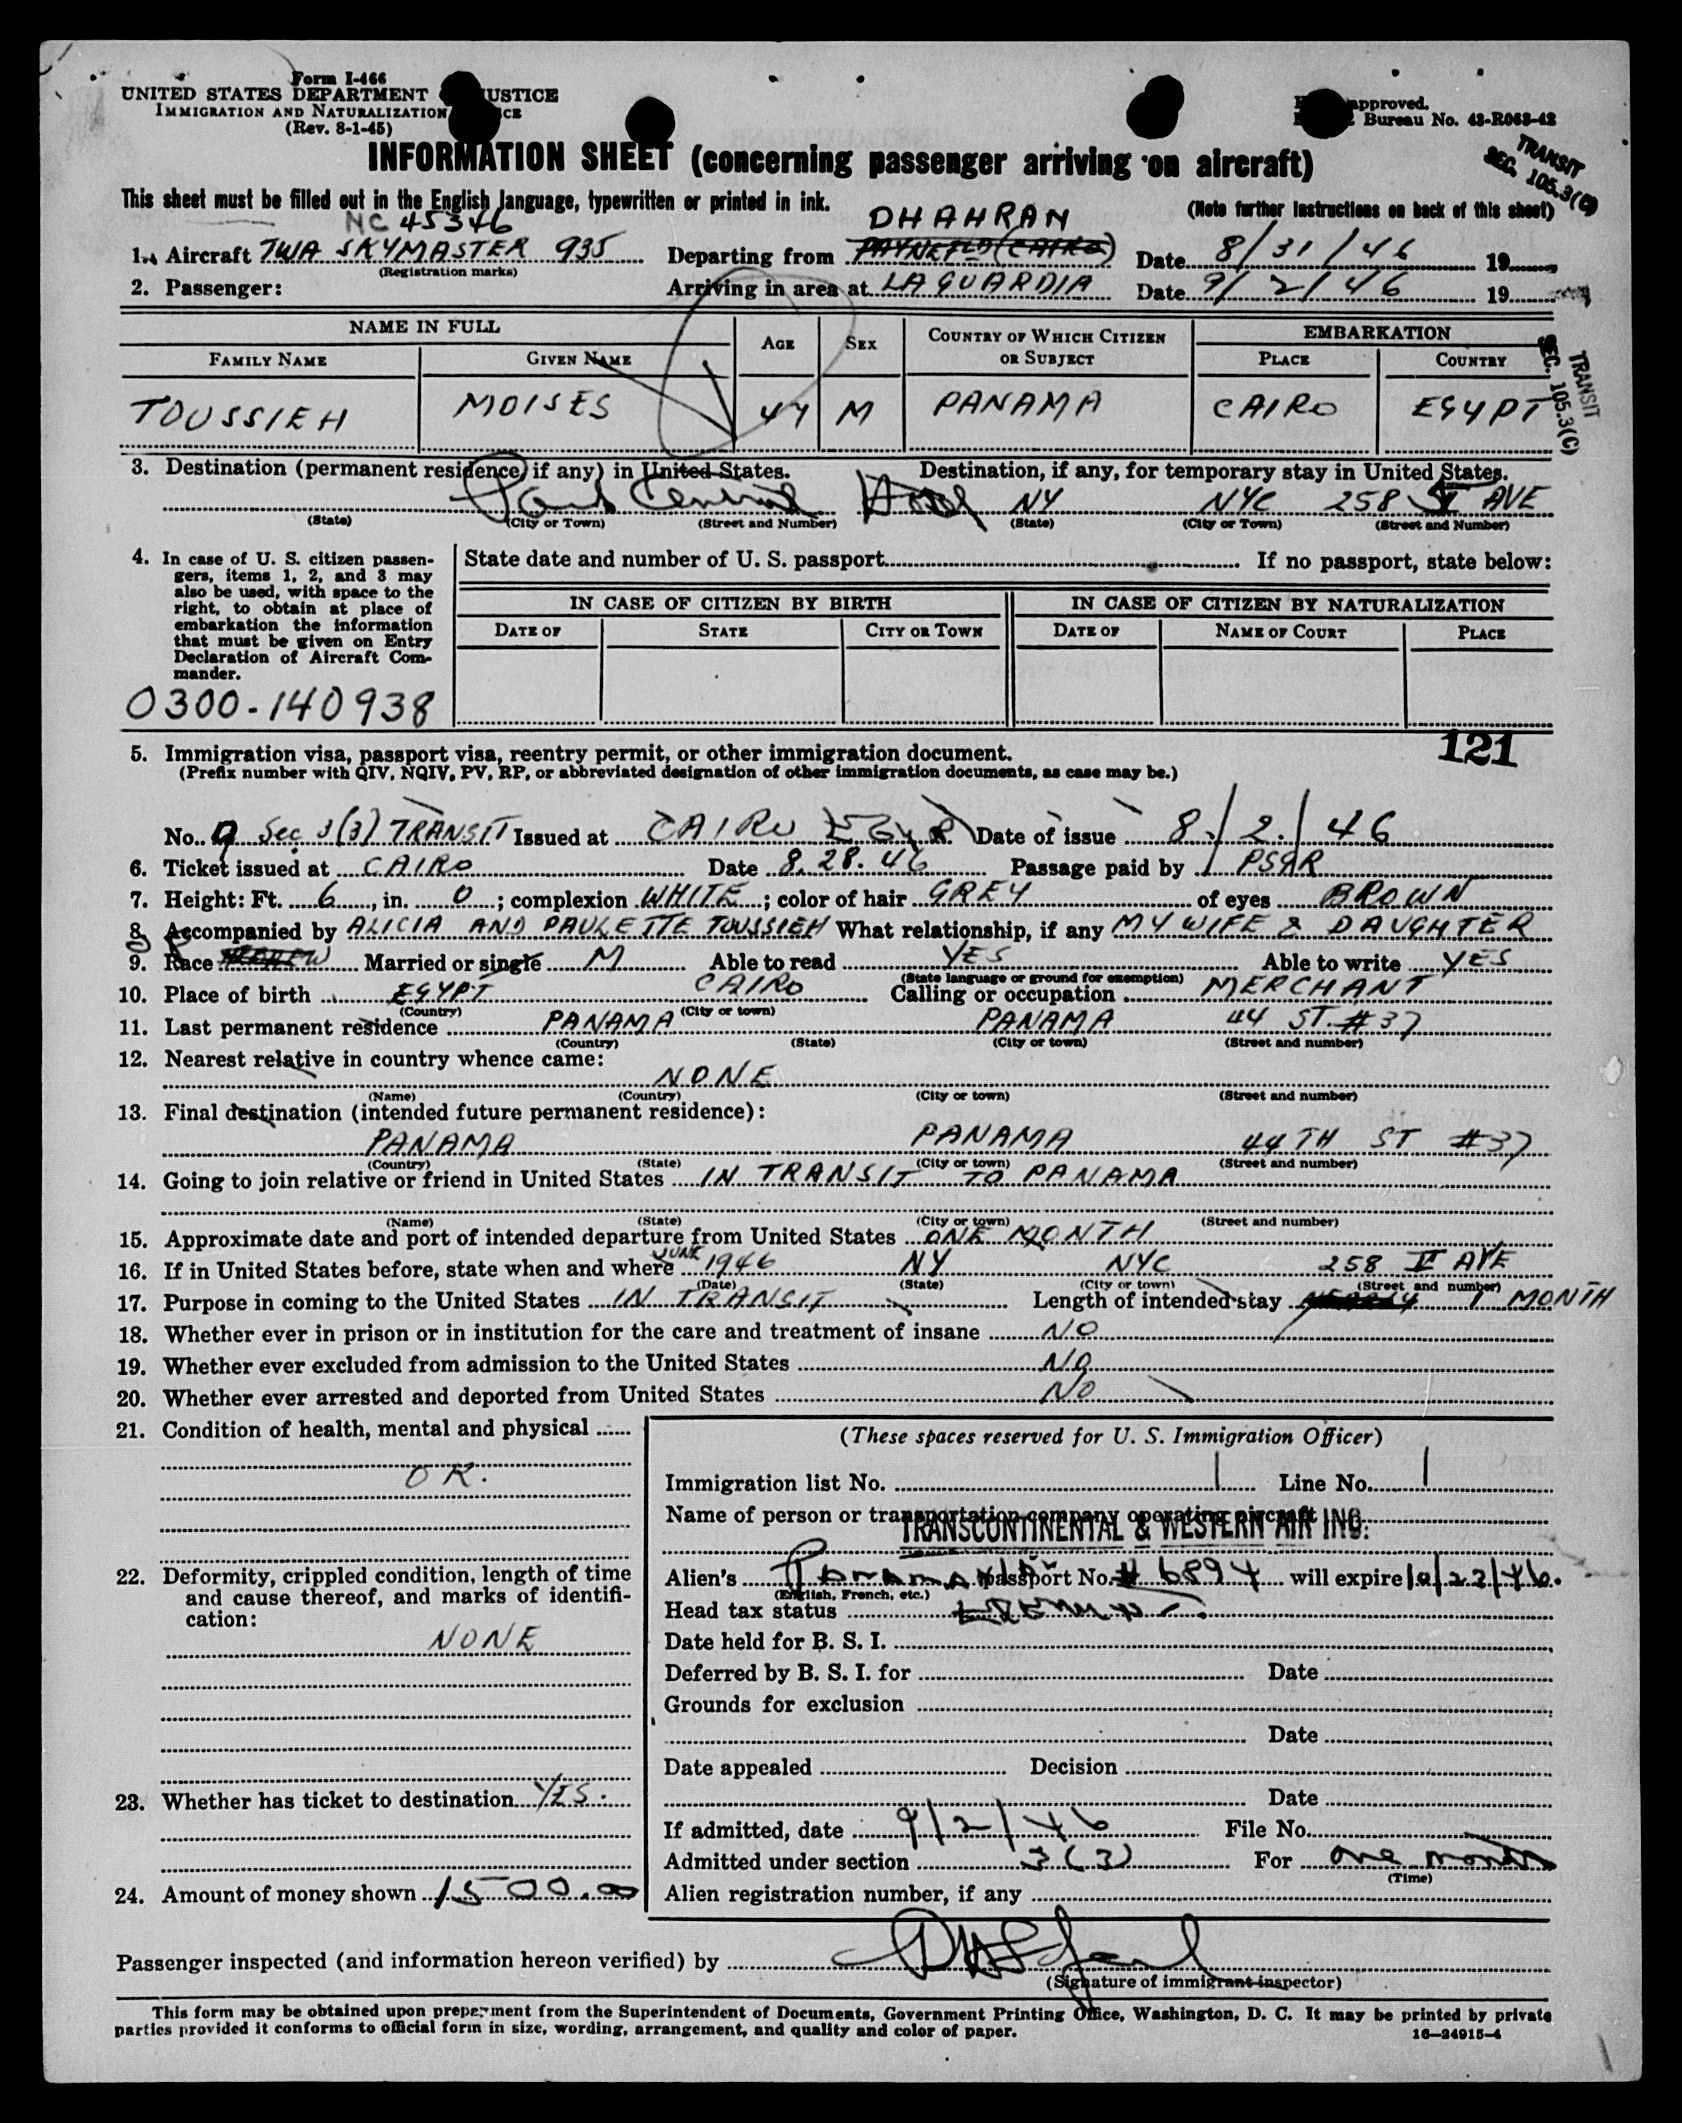 Form I-466
UNITED STATES DEPARTMENT USTICE
IMMIGRATION AND NATURALIZATION CE
(Rev. 8-1-45)
approved.
Bureau No. 43-R063-42
TRANSIT
SEC. 105.3(C)
INFORMATION SHEET (concerning passenger arriving on aircraft)
This sheet must be filled out in the English language, typewritten or printed in ink.
(Note further instructions on back of this sheet)
NC 45346
DHAHRAN
1. Aircraft TWA SKYMASTER 935 Departing from PAYNEFLD (CAIRO) Date 8/31/46 19
(Registration marks)
2. Passenger: Arriving in area at LAGUARDIA Date 9/2/46 19
NAME IN FULL AGE SEX COUNTRY OF WHICH CITIZEN OR SUBJECT EMBARKATION
FAMILY NAME GIVEN NAME PLACE COUNTRY
TOUSSIEH MOISES 44 M PANAMA CAIRO EGYPT
TRANSIT
SEC. 105.3(C)
3. Destination (permanent residence, if any) in United States. Destination, if any, for temporary stay in United States.
Park Central Hotel NY NYC 258 V AVE
(State) (City or Town) (Street and Number) (State) (City or Town) (Street and Number)
4. In case of U. S. citizen passen-
gers, items 1, 2, and 3 may
also be used, with space to the
right, to obtain at place of
embarkation the information
that must be given on Entry
Declaration of Aircraft Com-
mander.
State date and number of U. S. passport If no passport, state below:
IN CASE OF CITIZEN BY BIRTH IN CASE OF CITIZEN BY NATURALIZATION
DATE OF STATE CITY OR TOWN DATE OF NAME OF COURT PLACE
0300-140938
121
5. Immigration visa, passport visa, reentry permit, or other immigration document.
(Prefix number with QIV, NQIV, PV, RP, or abbreviated designation of other immigration documents, as case may be.)
No. 9 Sec 3(3) TRANSIT Issued at CAIRO Date of issue 8/2/46
6. Ticket issued at CAIRO Date 8.28.46 Passage paid by PSGR
7. Height: Ft. 6, in. 0; complexion WHITE; color of hair GREY of eyes BROWN
8. Accompanied by ALICIA AND PAULETTE TOUSSIEH What relationship, if any MY WIFE & DAUGHTER
9. Race Married or single M Able to read YES Able to write YES
(State language or ground for exemption)
10. Place of birth EGYPT CAIRO Calling or occupation MERCHANT
(Country) (City or town)
11. Last permanent residence PANAMA PANAMA 44 ST. #37
(Country) (State) (City or town) (Street and number)
12. Nearest relative in country whence came:
NONE
(Name) (Country) (City or town) (Street and number)
13. Final destination (intended future permanent residence):
PANAMA PANAMA 44TH ST #37
(Country) (State) (City or town) (Street and number)
14. Going to join relative or friend in United States IN TRANSIT TO PANAMA
(Name) (State) (City or town) (Street and number)
15. Approximate date and port of intended departure from United States ONE MONTH
16. If in United States before, state when and where JUNE 1946 NY NYC 258 V AVE
(Date) (State) (City or town) (Street and number)
17. Purpose in coming to the United States IN TRANSIT Length of intended stay 1 MONTH
18. Whether ever in prison or in institution for the care and treatment of insane NO
19. Whether ever excluded from admission to the United States NO
20. Whether ever arrested and deported from United States NO
21. Condition of health, mental and physical
OK.
22. Deformity, crippled condition, length of time
and cause thereof, and marks of identifi-
cation:
NONE
23. Whether has ticket to destination YES.
24. Amount of money shown 1500.00
(These spaces reserved for U. S. Immigration Officer)
Immigration list No. 1 Line No. 1
Name of person or transportation company operating aircraft
TRANSCONTINENTAL & WESTERN AIR INC.
Alien's Panama passport No. #6894 will expire 10/23/46.
(English, French, etc.)
Head tax status Exempt.
Date held for B. S. I.
Deferred by B. S. I. for Date
Grounds for exclusion
Date
Date appealed Decision
Date
If admitted, date 9/2/46 File No.
Admitted under section 3(3) For one month
(Time)
Alien registration number, if any
Passenger inspected (and information hereon verified) by
(Signature of immigrant inspector)
This form may be obtained upon prepayment from the Superintendent of Documents, Government Printing Office, Washington, D. C. It may be printed by private
parties provided it conforms to official form in size, wording, arrangement, and quality and color of paper.
16—24915-4